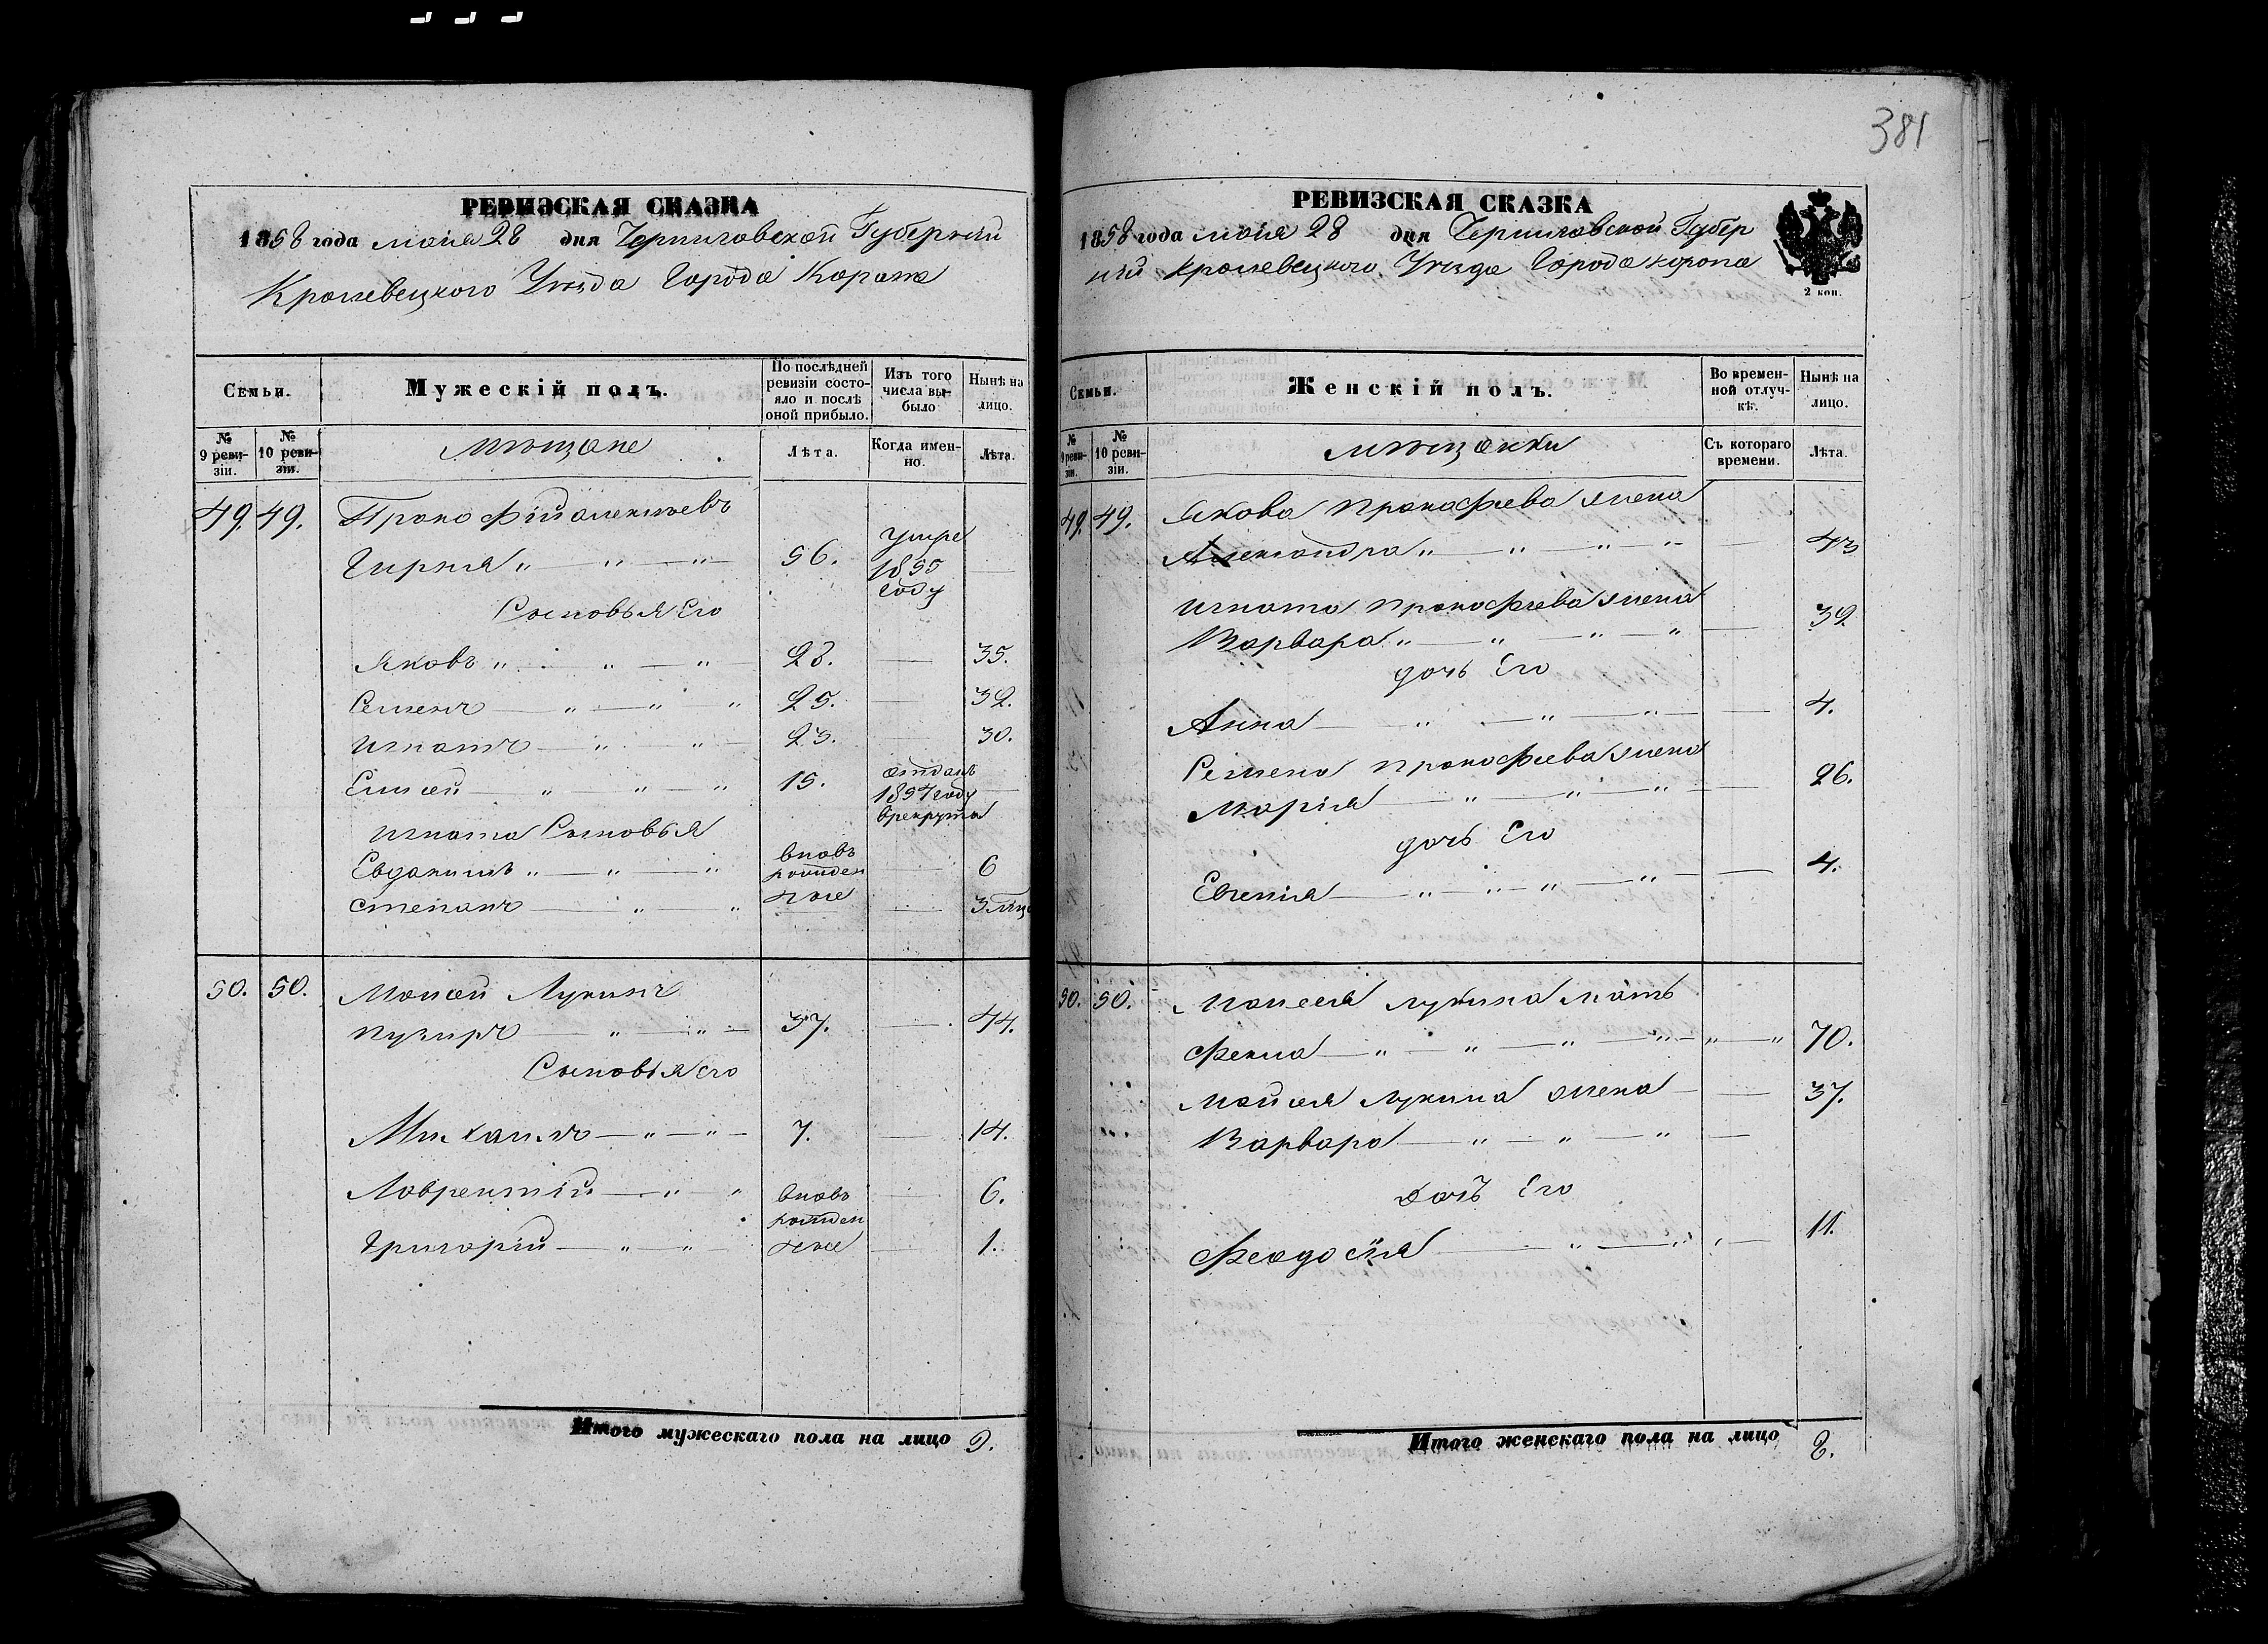 РЕВИЗСКАЯ СКАЗКА
1858 года мая 28 дня Черниговской Губернии
Кролевецкого Уезда Города Коропа
Семьи.
Мужескій полъ.
По послѣдней ревизіи состояло и послѣ оной прибыло.
Изъ того числа выбыло
Нынѣ на лицо.
№ 9 ревизіи.
№ 10 ревизіи.
мѣщане
Лѣта.
Когда именно.
Лѣта.
49. 49. Прокофій Алексѣевъ
56. умре 1855 году
Сыновья Его
Яковъ 28. 35.
Семенъ 25. 32.
Игнатъ 23. 30.
Елисей 15. отданъ 1857 году в рекруты
Игната Сыновья
Евдокимъ вновь рожден 6
Степанъ ные 3 мѣц
50. 50. Моисей Лукинъ
Пузирь 37. 44.
Сыновья его
Михаилъ 7. 14.
Лаврентій вновь рожден 6.
Григорій ные 1.
Итого мужескаго пола на лицо 9.
381
РЕВИЗСКАЯ СКАЗКА
1858 года мая 28 дня Черниговской Губер
нии Кролевецкого Уезда Города Коропа
2 коп.
Семьи.
Женскій полъ.
Во временной отлучкѣ.
Нынѣ на лицо.
№ 9 ревизіи.
№ 10 ревизіи.
мѣщанки
Съ котораго времени.
Лѣта.
49. 49. Якова Прокофьева жена
Александра 43
Игната Прокофьева жена
Варвара 32
дочь Его
Анна 4.
Семена Прокофьева жена
Марія 26.
дочь Его
Евгенія 4.
50. 50. Моисея Лукина мать
Фекла 70.
Мойсея Лукина жена 37.
Варвара
дочь Его
Феодосія 11.
Итого женскаго пола на лицо 8.